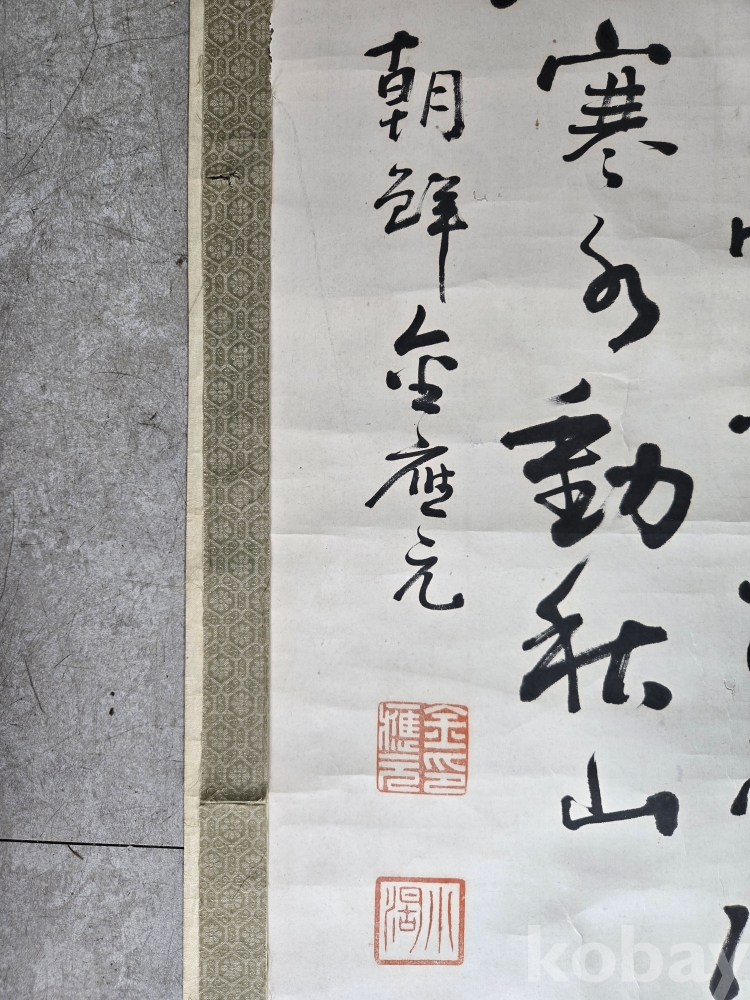 寒水動秋山
朝鮮金應元
金印應元
小湖
kobay